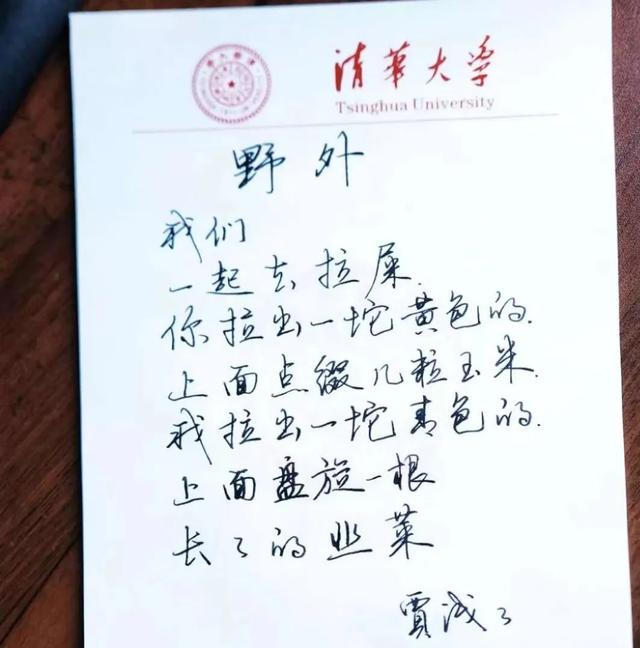 清华大学
Tsinghua University
野外
我们
一起去拉屎.
你拉出一坨黄色的.
上面点缀几粒玉米.
我拉出一坨青色的.
上面盘旋一根
长了的韭菜
贾浅了